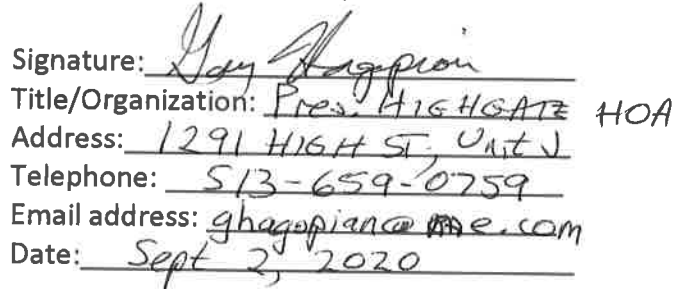 Signature: Gary Hagopian
Title/Organization: Pres. HIGHGATE HOA
Address: 1291 HIGH ST, Unit J
Telephone: 513-659-0759
Email address: ghagopian@me.com
Date: Sept 2, 2020